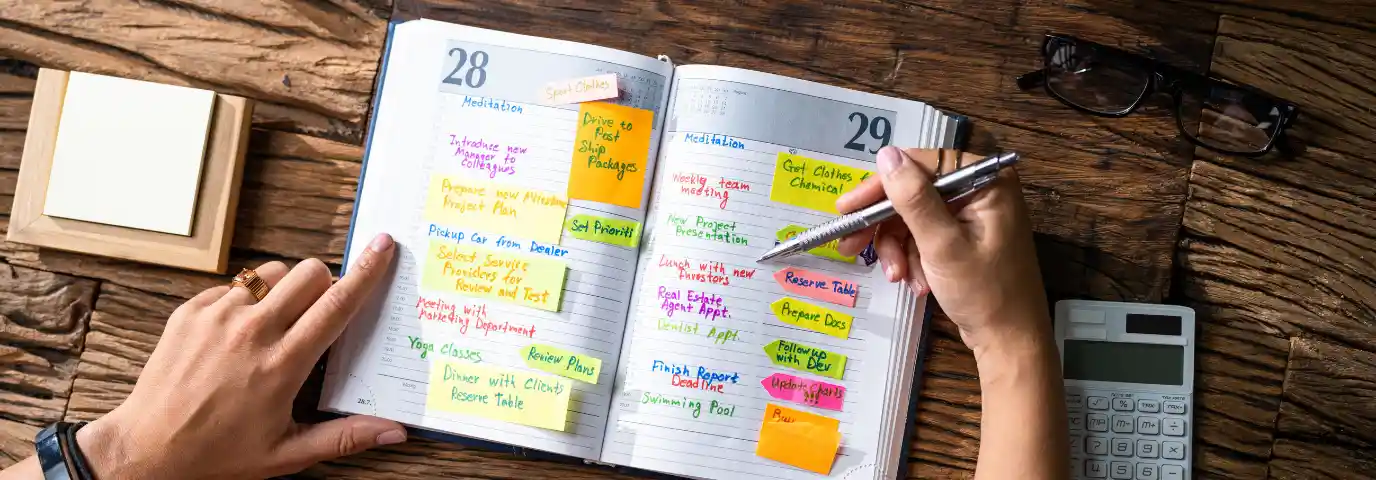 28
Sport Clothes
Meditation
Drive to
Post
Ship
Packages
Introduce new
Manager to
Colleagues
Prepare new
Project Plan
Set Prioriti
Pickup Car from Dealer
Select Service
Providers for
Review and Test
Meeting with
Marketing Department
Yoga Classes
Review Plans
Dinner with Clients
Reserve Table
29
Meditation
Get Clothes f
Chemical
Weekly team
meeting
New Project
Presentation
Lunch with new
Investors
Reserve Table
Real Estate
Agent Appt.
Prepare Docs
Dentist Appt.
Follow up
with Dev
Finish Report
Deadline
Update Charts
!!!
Swimming Pool
Buy
√ % MRC
M- M+ ÷
7 8 9 ×
4 5 6 -